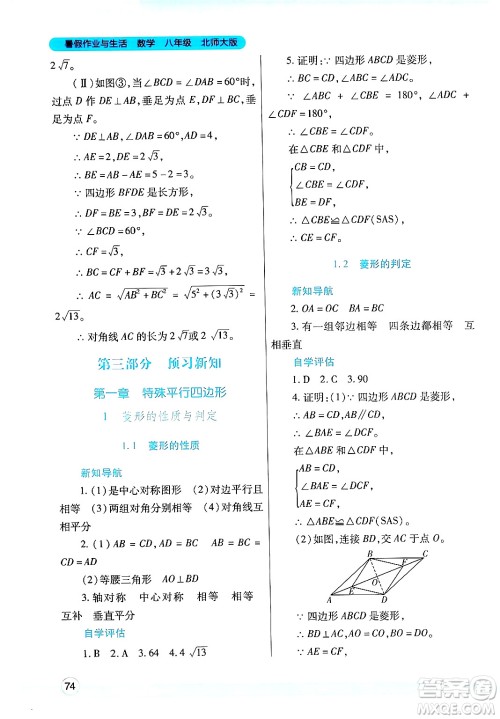 暑假作业与生活 数学 八年级 北师大版
2√7.
(Ⅱ)如图③,当∠BCD=∠DAB=60°时,
过点 D 作 DE⊥AB,垂足为点 E,DF⊥BC,垂
足为点 F.
∵ DE⊥AB,∠DAB=60°,AD=4,
∴ AE=2,DE=2√3,
∴ BE=AB-AE=5-2=3,
∵ 四边形 BFDE 是长方形,
∴ DF=BE=3,BF=DE=2√3,
∵ ∠BCD=60°,
∴ CF=√3,
∴ BC=CF+BF=√3+2√3=3√3,
∴ AC=√(AB²+BC²)=√(5²+(3√3)²)=
2√13.
∴ 对角线 AC 的长为 2√13.
第三部分 预习新知
第一章 特殊平行四边形
1 菱形的性质与判定
1.1 菱形的性质
新知导航
1.(1)是中心对称图形 (2)对边平行且
相等 (3)两组对角分别相等 (4)对角线互
相平分
2.(1)AB=CD AB=BC AB=BC
=CD=AD
(2)等腰三角形 AO⊥BD
3.轴对称 中心对称 相等 相等
互补 垂直平分
自学评估
1.B 2.A 3.64 4.√13
5.证明:∵ 四边形 ABCD 是菱形,
∴ BC=CD,∠ABC=∠ADC,
∵ ∠ABC+∠CBE=180°,∠ADC+
∠CDF=180°,
∴ ∠CBE=∠CDF.
在△CBE 和△CDF 中,
CB=CD
∠CBE=∠CDF,
BE=DF
∴ △CBE≌△CDF(SAS),
∴ CE=CF.
1.2 菱形的判定
新知导航
2.OA=OC BA=BC
3.有一组邻边相等 四条边都相等 互
相垂直
自学评估
1.D 2.C 3.90
4.证明:(1)∵ 四边形 ABCD 是菱形,
∴ AB=CD,AB∥CD,
∴ ∠BAE=∠DCF.
在△ABE 和△CDF 中,
AB=CD
∠BAE=∠DCF,
AE=CF
∴ △ABE≌△CDF(SAS).
(2)如图,连接 BD,交 AC 于点 O.
B C
F
E
A D
∵ 四边形 ABCD 是菱形,
∴ BD⊥AC,AO=CO,BO=DO,
∵ AE=CF,
∴ EO=FO,
∴ 四边形 BEDF 是平行四边形.
74